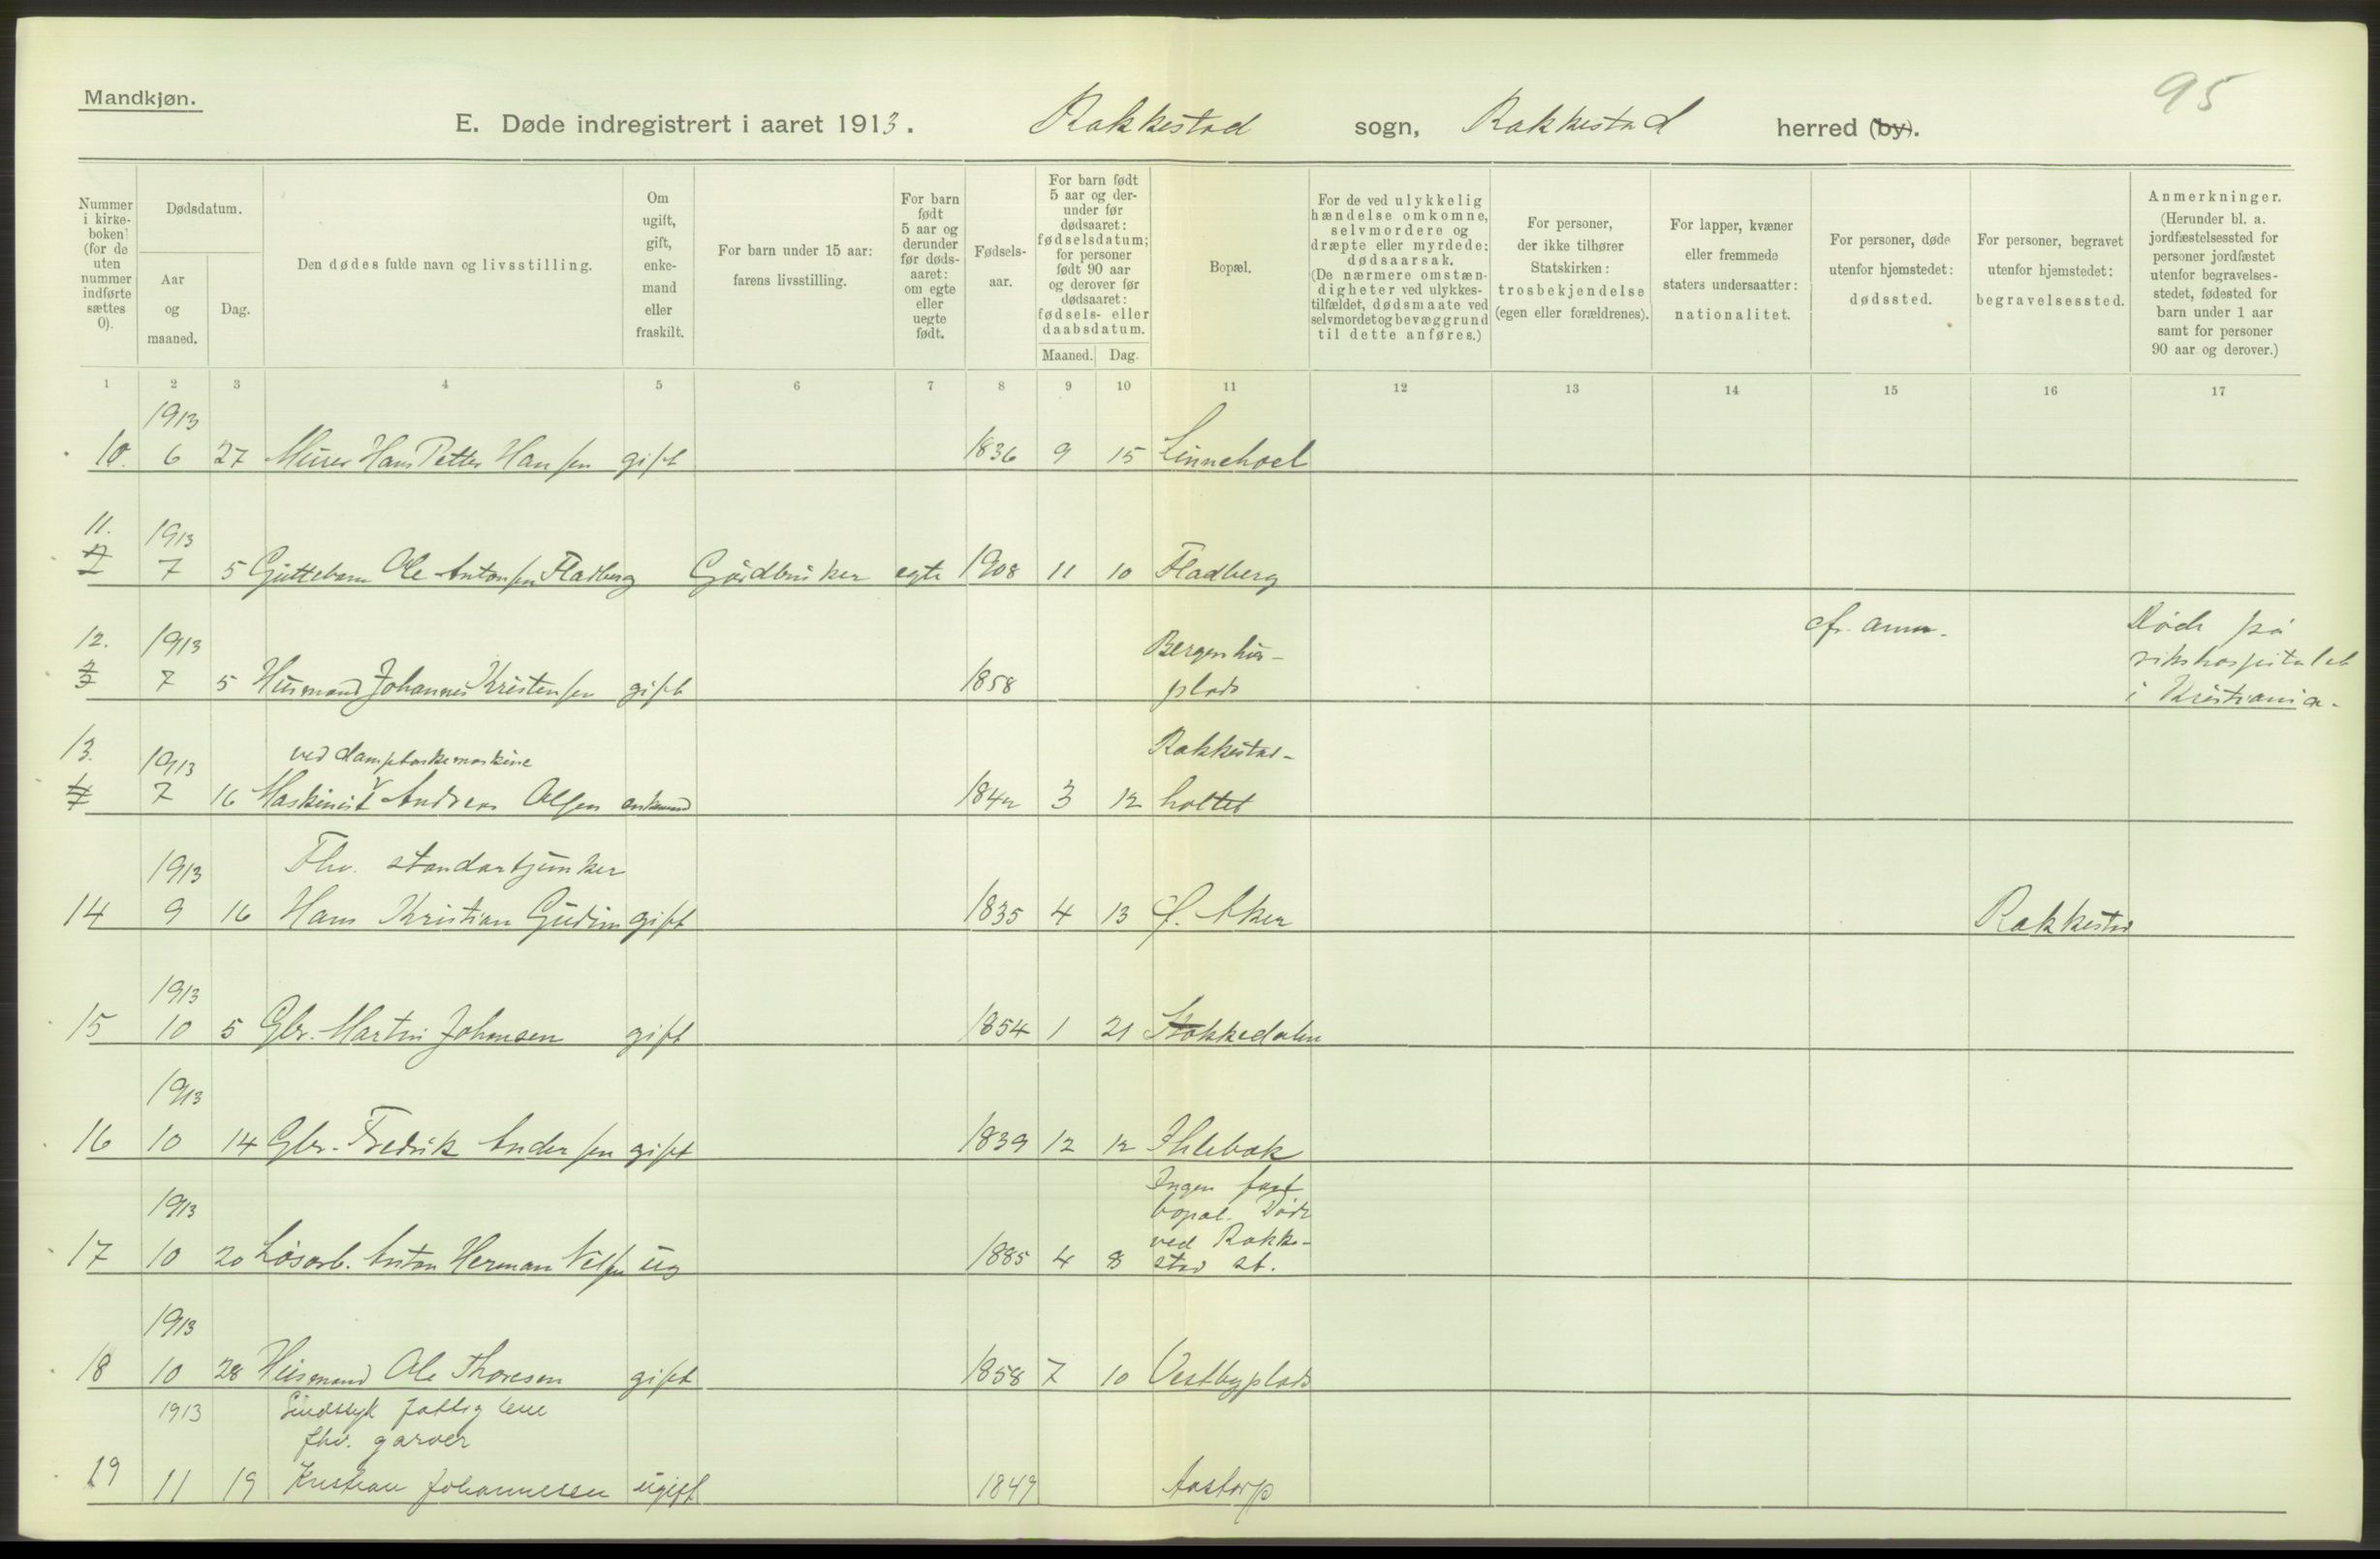 95
Mandkjøn.
E. Døde indregistrert i aaret 1913. Rakkestad sogn, Rakkestad herred (by).
Nummer i kirke-boken (for de uten nummer indførte sættes 0).
Dødsdatum.
Aar og maaned.
Dag.
Den dødes fulde navn og livsstilling.
Om ugift, gift, enke-mand eller fraskilt.
For barn under 15 aar: farens livsstilling.
For barn født 5 aar og derunder før døds-aaret: om egte eller uegte født.
Fødsels-aar.
For barn født 5 aar og der-under før dødsaaret: fødselsdatum; for personer født 90 aar og derover før dødsaaret: fødsels- eller daabsdatum.
Maaned. Dag.
Bopæl.
For de ved ulykkelig hændelse omkomne, selvmordere og dræpte eller myrdede: dødsaarsak. (De nærmere omstæn-digheter ved ulykkes-tilfældet, dødsmaate ved selvmordet og bevæggrund til dette anføres.)
For personer, der ikke tilhører Statskirken: trosbekjendelse (egen eller forældrenes).
For lapper, kvæner eller fremmede staters undersaatter: nationalitet.
For personer, døde utenfor hjemstedet: dødssted.
For personer, begravet utenfor hjemstedet: begravelsessted.
Anmerkninger. (Herunder bl. a. jordfæstelsessted for personer jordfæstet utenfor begravelses-stedet, fødested for barn under 1 aar samt for personer 90 aar og derover.)
1 2 3 4 5 6 7 8 9 10 11 12 13 14 15 16 17
1913
10. 6 27 Murer Hans Petter Hansen gift 1836 9 15 Linnehoel
11. 1913
7 5 Guttebarn Ole Antonsen Fladberg Gårdbruker egte 1908 11 10 Fladberg
12. 1913 Bergenhus- cfr. anm. Døde på
rikshospitalet
7 5 Husmand Johannes Kristensen gift 1858 plads i Kristiania.
13. 1913 ved damptærskemaskine Rakkestad-
7 16 Maskinist Andreas Olsen enkemand 1842 3 12 holtet
1913 Fhv. standartjunker
14 9 16 Hans Kristian Gudim gift 1835 4 13 Aker Rakkestad
1913
15 10 5 Gbr. Martin Johansen gift 1854 1 21 Stokkedalen
1913
16 10 14 Gbr. Fredrik Andersen gift 1839 12 12 Ihlebæk
Ingen fast
1913 bopæl. Døde
ved Rakke-
17 10 20 Løsarb. Anton Herman Nilsen ug 1885 4 8 stad st.
1913
18 10 28 Husmand Ole Thoresen gift 1858 7 10 Vestbyplads
1913 Sindssyk fattiglem
fhv. garver
19 11 19 Kristian Johannessen ugift 1849 Aastorp